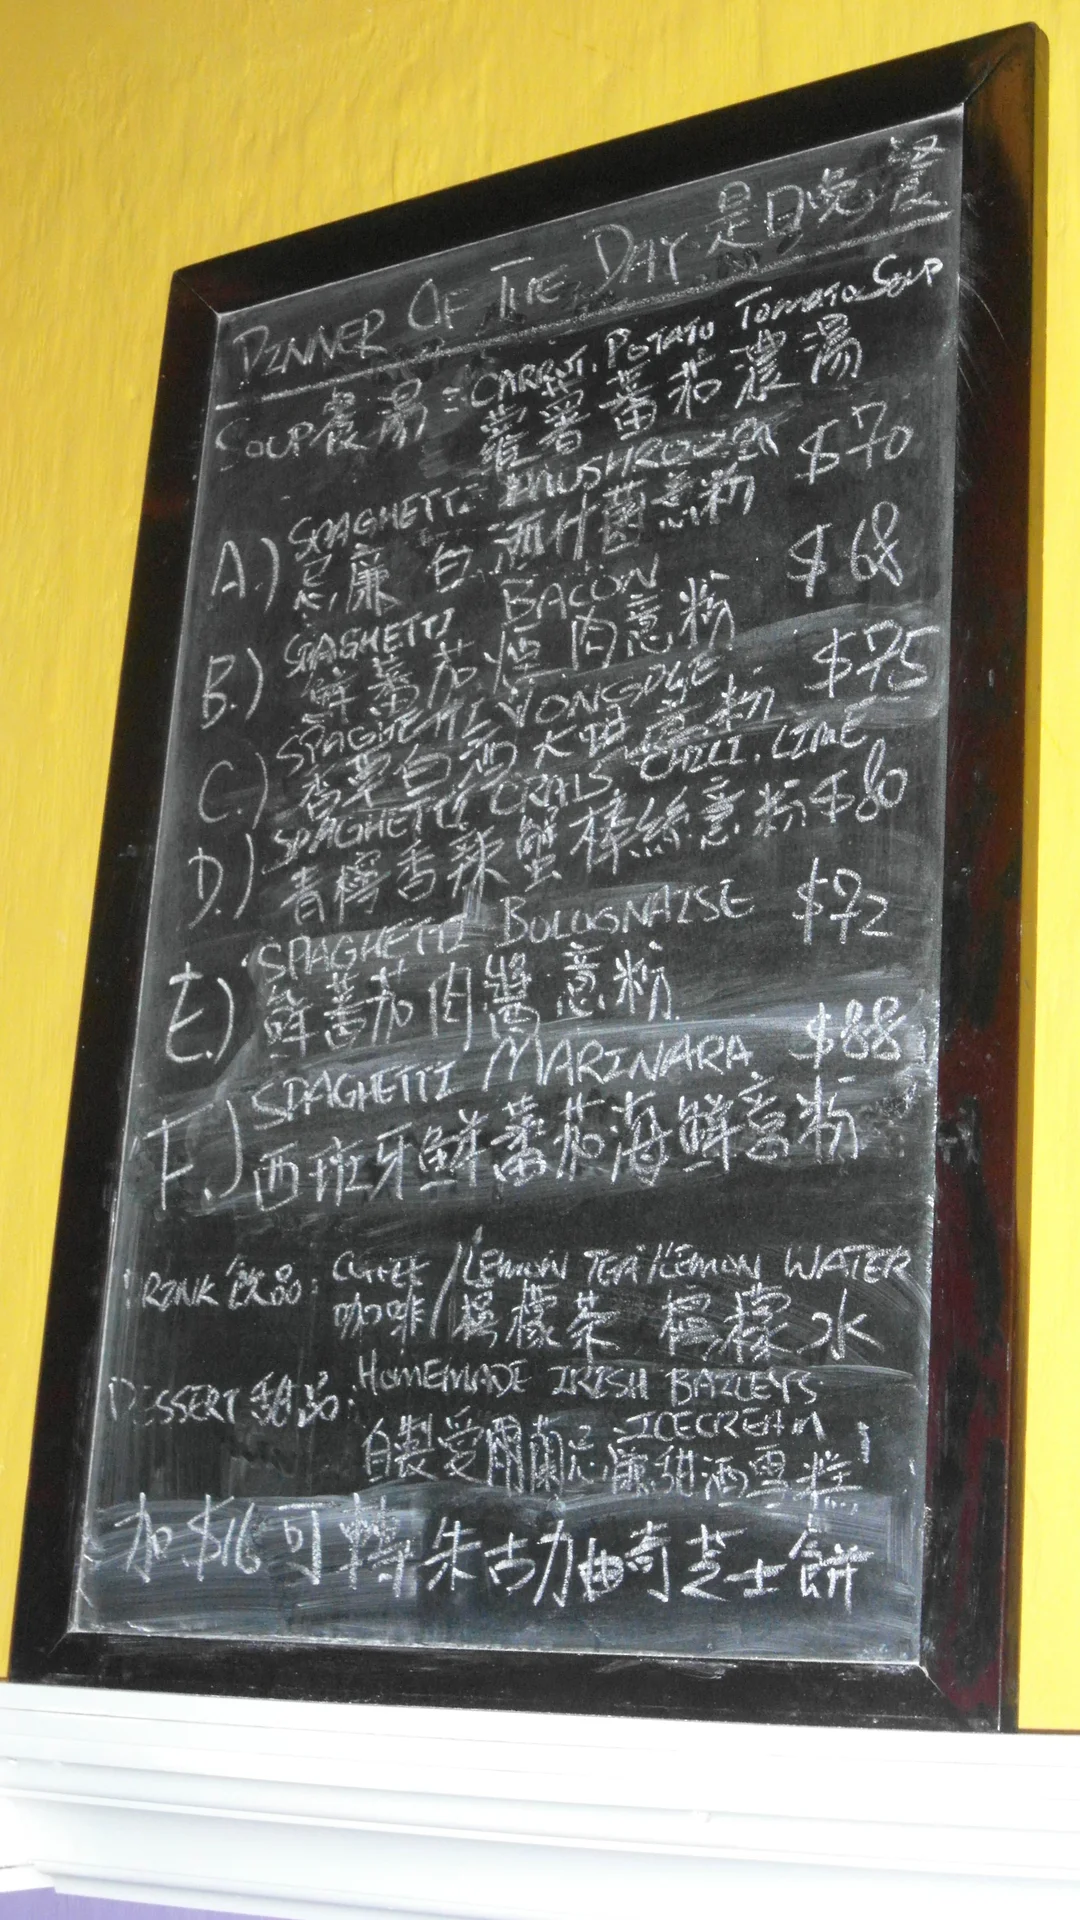 DINNER OF THE DAY 是日晚餐
SOUP 餐湯: CARROT, POTATO TOMATO SOUP
薯蕃茄濃湯
A.) SPAGHETTI MUSHROOM $70
廉白酒什菌意粉
B.) SPAGHETTI BACON $68
鮮蕃茄煙肉意粉
C.) SPAGHETTI VONGOLE $75
香草白酒大蜆意粉
D.) SPAGHETTI CRABS, CHILI, LIME
青檸香辣蟹棒絲意粉 $80
E.) SPAGHETTI BOLOGNAISE $72
鮮蕃茄肉醬意粉
F.) SPAGHETTI MARINARA $88
西班牙鮮蕃茄海鮮意粉
DRINK 飲品: COFFEE / LEMON TEA / LEMON WATER
咖啡/檸檬茶 檸檬水
DESSERT 甜品: HOMEMADE IRISH BAILEYS
ICECREAM
自製愛爾蘭忌廉甜酒雪糕
加$16可轉朱古力曲奇芝士餅